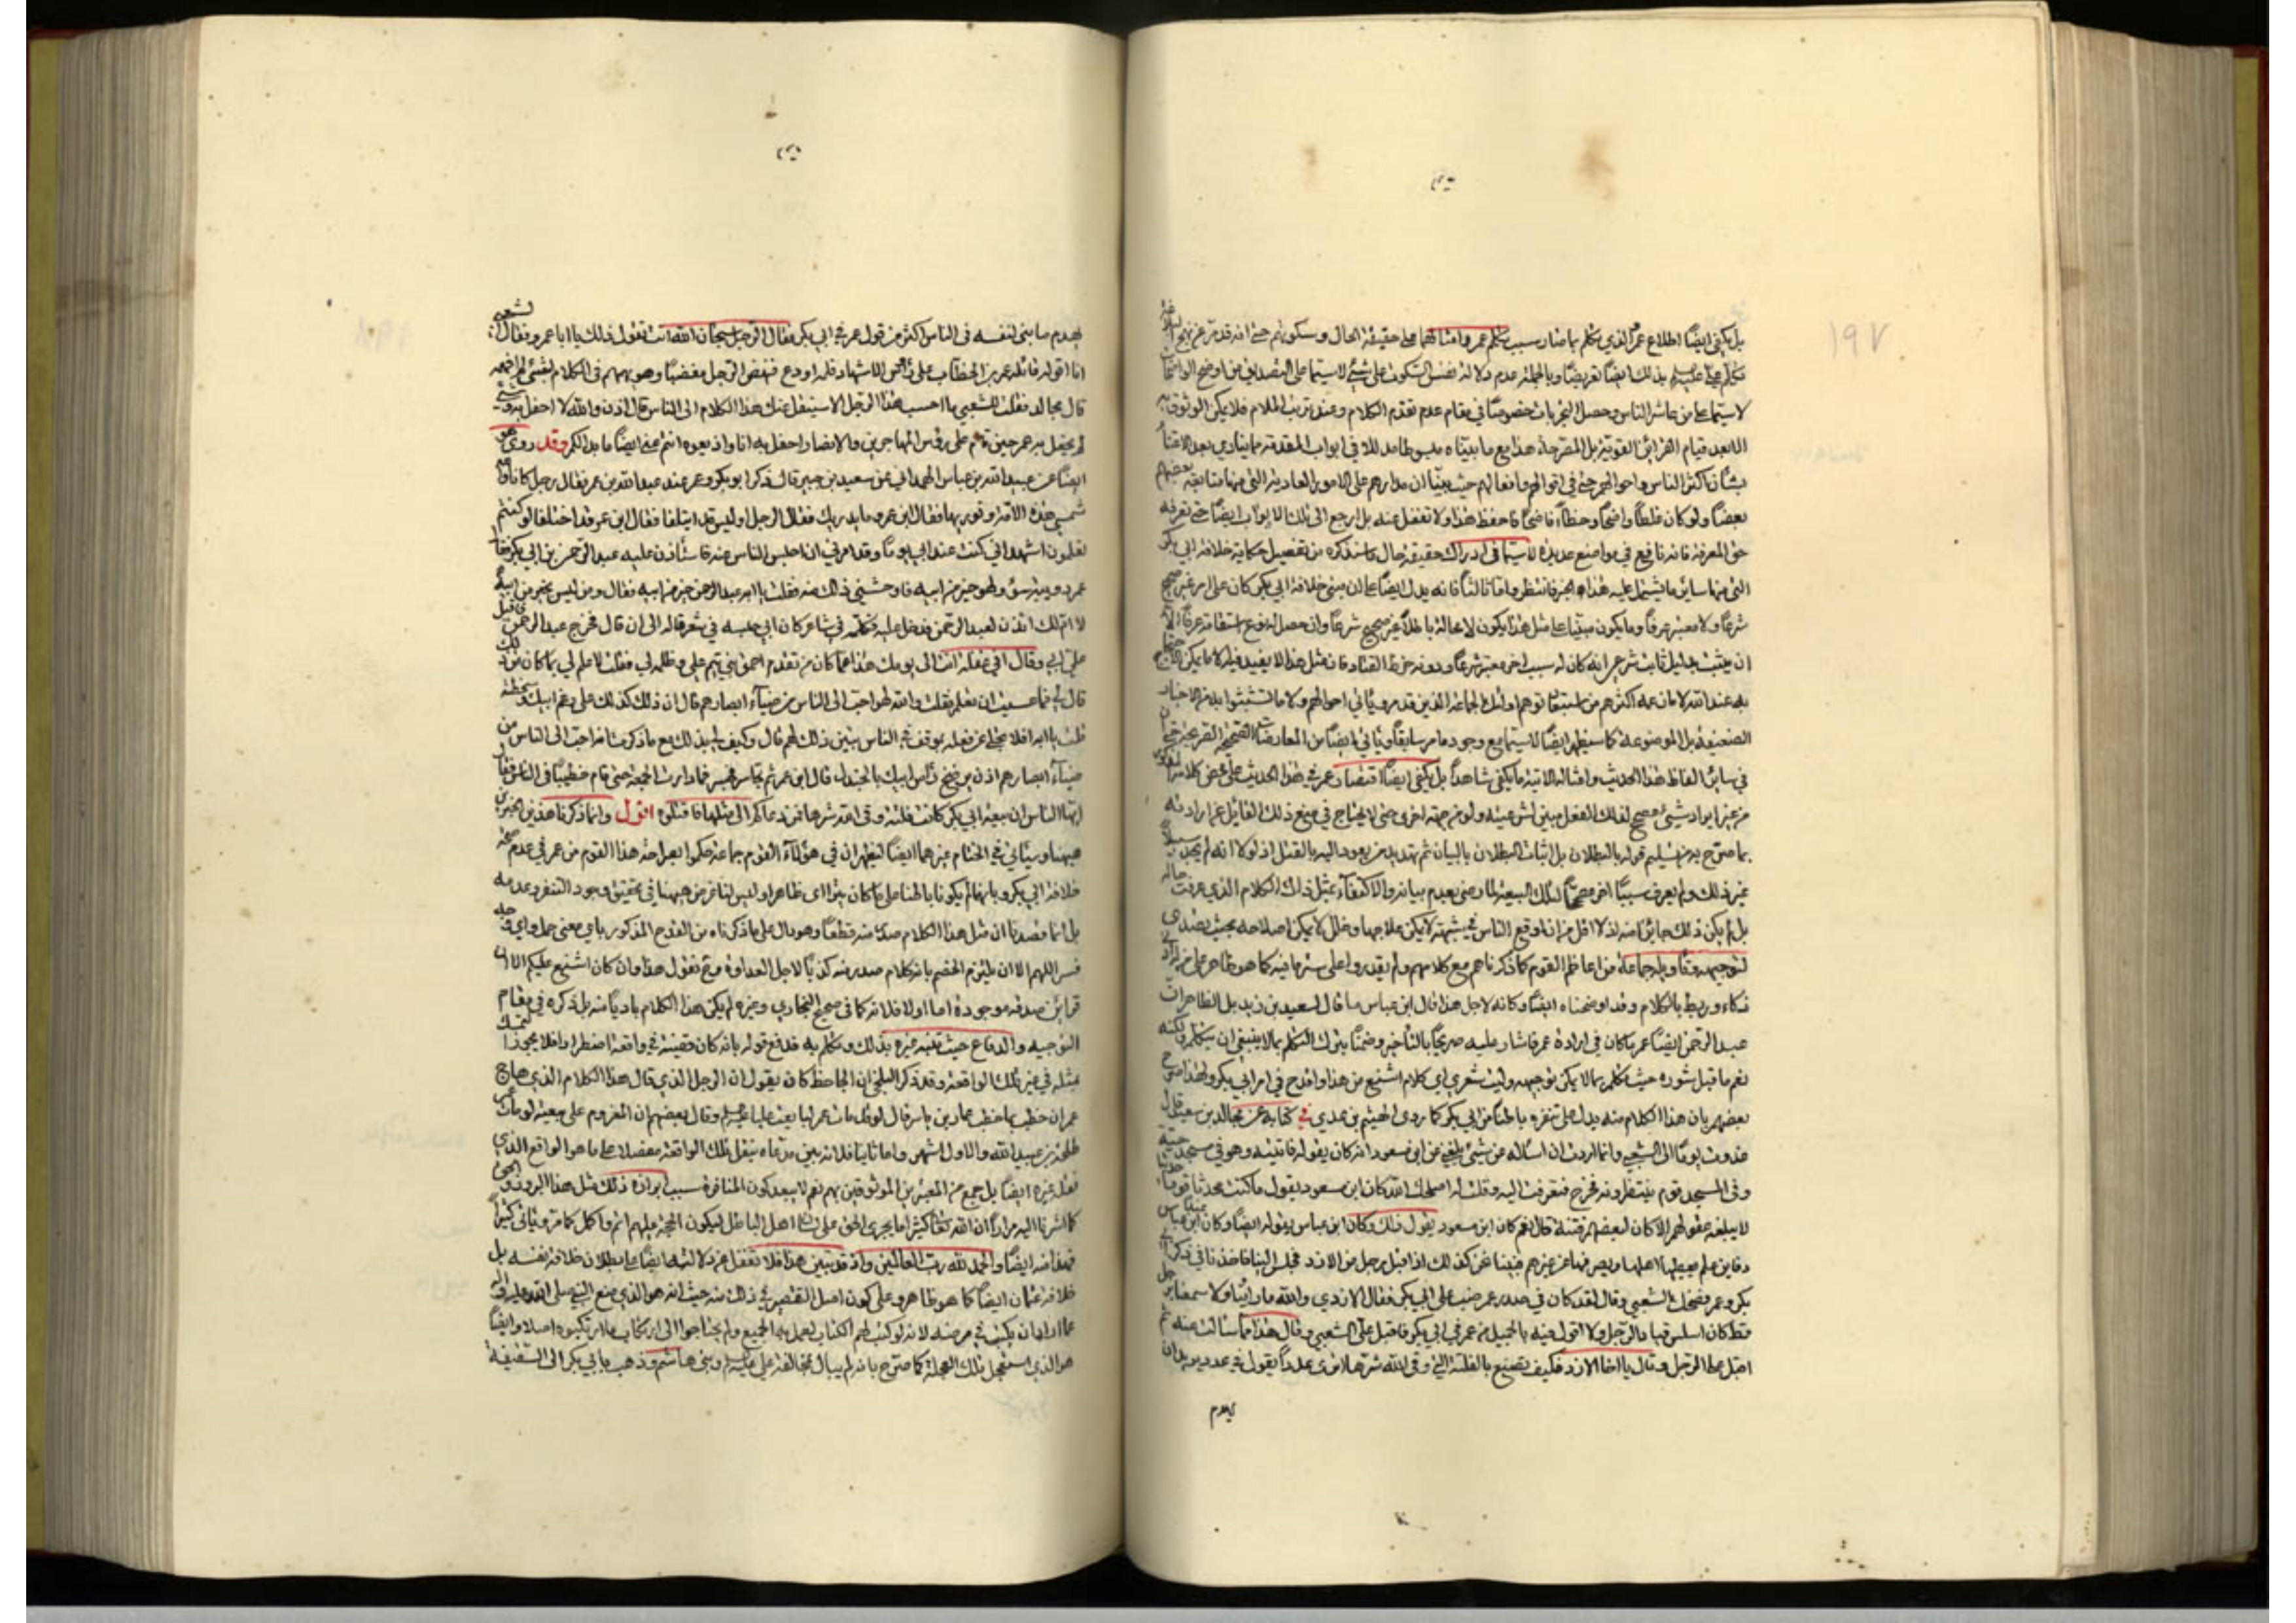 ١٩٧
بل يكفى ايضًا اطلاع عمر الذي تكلم بما صار سبب تكلم عمر وامثالهما على حقيقة الحال وسكوتهم حتى انه قد مر
بذلك ايضًا تعريضًا وبالجملة عدم دلالة نفس السكوت على شيء لاسيما على التصديق من اوضح الواضحات
لاسيما على من عاشر الناس وحصل التجربات خصوصًا في مقام عدم تقدم الكلام وعند ترتب الملام فلا يمكن الوثوق به
الا بعد قيام القرائن القوية بل المصرحة هذا مع ما بيناه مبسوطا مدللا في ابواب المقدمة مما ينادي بعدم الاعتناء
بشان اكثر الناس واحوالهم حتى في اقوالهم وافعالهم حيث بينا ان مدارهم على الامور العادية التي منها متابعة بعضهم
بعضًا ولو كان غلطًا واضحًا وخطاءً فاضحًا فاحفظ هذا ولا تغفل عنه بل ارجع الى تلك الابواب ايضًا حتى تعرفه
حق المعرفة فانه نافع في مواضع عديدة لاسيما في ادراك حقيقة حال ما سنذكره من تفصيل حكاية خلافة ابي بكر
التى منها ساير ما يشتمل عليه هذا الخبر فانتظر واما ثالثًا فانه يدل ايضًا على ان مبنى خلافة ابي بكر كان على امر غير صحيح
شرعًا ولا معتبر عرفًا وما يكون مبتنيًا على مثل هذا يكون لا محالة باطلًا غير صحيح شرعًا وان حصل له نوع استقامة عرفًا الا
ان يثبت بدليل ثابت شرعى انه كان له سبب اخر معتبر شرعًا ودونه خرط القتاد فان مثل هذا لا يفيد فيه الا ما يمكن الاحتجاج
به عند الله لا ما زعمه اكثرهم من اولئك الجماعة الذين قد مر وياتي احوالهم ولا ما تشبثوا به من الاخبار
الضعيفة بل الموضوعة كما سيظهر ايضًا لاسيما مع وجود ما مر سابقًا وياتي ايضًا من المعارضات الصحيحة الصريحة
في ساير الفاظ هذا الحديث وامثاله الاتية ما يكفى شاهدًا بل يكفى ايضًا اقتصار عمر في هذا الحديث على محض كلامه
من غير ايراد شيء مصحح لذلك الفعل مبين لشرعيته ولو من جهة اخرى حتى لا يحتاج في منع ذلك القايل عما اراد به
بما صرح به من تسليم قوله بالبطلان بل اثبات البطلان بالبيان ثم تهديد من يعود اليه بالقتل اذ لولا انه لم يجد سبيلا
غير ذلك ولم يعرف سببًا اخر مصححًا لتلك البيعة لما رضى بعدم بيانه والاكتفاء بمثل ذلك الكلام الذي عرفت حاله
بل لم يكن ذلك جائزًا منه اذ لا اقل من انه اوقع الناس في شبهة لا يمكن علاجها وخلل لا يمكن اصلاحه بحيث تصدى
لتوجيهه وتاويله جماعة من اعاظم القوم كما ذكرناهم مع كلامهم ولم يقدروا على ستر ما فيه كما هو ظاهر على من له ادنى
ذكاء وربط بالكلام وقد اوضحناه ايضًا وكانه لاجل هذا قال ابن عباس ما قال لسعيد بن زيد بل الظاهر ان
عبد الرحمن ايضًا عرف ما كان في ارادة عمر فاشار عليه صريحًا بالتاخير وضمنًا بترك التكلم بما لا ينبغي ان يتكلم به لكنه
نعم ما قبل شوره حيث تكلم بما لا يمكن توجيهه وليت شعري اي كلام اشنع من هذا واقدح في امر ابي بكر ولهذا صرح
بعضهم بان هذا الكلام منه يدل على تنفره باطنًا من ابي بكر كما روى الهيثم بن عدي في كتابه عن مجالد بن سعيد قال
غدوت يومًا الى الشعبي وانما اردت ان اساله عن شيء بلغني عن ابن مسعود انه كان يقوله فاتيته وهو في مسجد حيه
وفي المسجد قوم ينتظرونه فخرج فتعرفت اليه وقلت له اصلحك الله كان ابن مسعود يقول ما كنت محدثًا قومًا حديثا
لا يبلغه عقولهم الا كان لبعضهم فتنة قال نعم كان ابن مسعود يقول ذلك وكان ابن عباس يقوله ايضًا وكان عند ابن عباس
دفاين علم يعطيها اهلها ويصرفها عن غيرهم فبينا نحن كذلك اذ اقبل رجل من الازد فجلس الينا فاخذنا في ذكر ابي
بكر وعمر فضحك الشعبي وقال لقد كان في صدر عمر ضب على ابي بكر فقال الازدي والله ما راينا ولا سمعنا برجل
قط كان اسلس قيادا لرجل ولا اقول فيه بالجميل من عمر في ابي بكر فاقبل على الشعبي وقال هذا مما سالت عنه ثم
اقبل على الرجل وقال يا اخا الازد فكيف يصنع بالفلتة التي وقى الله شرها اترى عدوًا يقول في عدو يريد ان
يهدم
يهدم ما بنى لنفسه في الناس اكثر من قول عمر في ابي بكر فقال الرجل سبحان الله انت تقول ذلك يا ابا عمرو فقال الشعبي
انا اقوله قاله عمر بن الخطاب على رؤس الاشهاد فلمه او دع فنهض الرجل مغضبًا وهو يهمهم في الكلام بشيء لم افهمه
قال مجالد فقلت للشعبي ما احسب هذا الرجل الا سينقل عنك هذا الكلام الى الناس قال اذن والله لا احفل به وشيء
لم يحفل به عمر حين قام على رؤس المهاجرين والانصار احفل به انا واذيعوه انتم عنى ايضًا ما بدا لكم وقد روى هو
ايضًا عن عبد الله بن عباس الهمداني عن سعيد بن جبير قال ذكر ابو بكر وعمر عند عبد الله بن عمر فقال رجل كانا والله
شمسي هذه الامة ونوريها فقال ابن عمر وما يدريك فقال الرجل اوليس قد ايتلفا فقال ابن عمر قد اختلفا لو كنتم
تعلمون اشهد اني كنت عند ابي يومًا وقد امرني ان احبس الناس عنه فاستأذن عليه عبد الرحمن بن ابي بكر فقال
عمر دويبة سوء ولهو خير من ابيه فاوحشني ذلك منه فقلت يا ابه عبد الرحمن خير من ابيه فقال ومن ليس بخير من ابيه
لا ام لك ائذن لعبد الرحمن فدخل عليه فكلمه في شاعر كان ابي حبسه في شعر قاله الى ان قال فخرج عبد الرحمن فاقبل
علىّ ابي وقال افي غفلة انت الى يومك هذا عما كان من تقدم احمق بني تيم علي وظلمه لي فقلت لا علم لي بما كان من ذلك
قال يا بني فما عسيت ان تعلم فقلت والله لهو احب الى الناس من ضياء ابصارهم قال ان ذلك كذلك على رغم ابيك وسخطه
قلت يا ابه افلا تحكي عن فعله بموقف في الناس تبين ذلك لهم قال وكيف لي بذلك مع ما ذكرت انه احب الى الناس من
ضياء ابصارهم اذن يرضخ رأس ابيك بالجندل قال ابن عمر ثم تجاسر فجسر فما دارت الجمعة حتى قام خطيبًا في الناس فقال
ايها الناس ان بيعة ابي بكر كانت فلتة وقى الله شرها فمن دعاكم الى مثلها فاقتلوه اقول وانما ذكرنا هذين الخبرين
هيهنا وسيأتي في الختام غيرهما ايضًا ليظهر ان في هؤلاء القوم جماعة حكموا بصراحة هذا القوم من عمر في عدم صحة
خلافة ابي بكر وبانهما لم يكونا باطنا على ما كان يترااى ظاهرا وليس لنا غرض هيهنا في تحقيق وجود التنفر وعدمه
بل انما قصدنا ان مثل هذا الكلام صدر منه قطعًا وهو دال على ما ذكرناه من القدح المذكور باي معنى حمل واي وجه
فسر اللهم الا ان يلتزم الخصم بانه كلام صدر منه كذبًا لاجل العداوة وح نقول هذا وان كان اشنع عليكم الا ان
قراين صدقه موجودة اما اولا فلانه كما في صحيح البخاري وغيره لم يكن هذا الكلام باديًا منه بل ذكره في مقام
التوجيه والدفاع حيث تنبه غيره بذلك وتكلم به فدفع قوله بانه كان قضية في واقعة اضطرار فلا يجوز التمسك
بمثله في غير تلك الواقعة وقد ذكر البلخي ان الجاحظ كان يقول ان الرجل الذي قال هذا الكلام الذي هاج
عمر ان خطب بما خطب عمار بن ياسر قال لو قد مات عمر لبايعت عليا عليه السلام وقال بعضهم ان المعزوم على بيعته لو مات عمر
طلحة بن عبيد الله والاول اشهر واما ثانيا فلانه يبين مدعاه بنقل تلك الواقعة مفصلا على ما هو الواقع الذي
نقله غيره ايضًا بل جمع من المعتبرين الموثوقين بهم نعم لا يبعد كون المنافرة سبب ابرازه ذلك مثل هذا البروز
كما اشرنا اليه مرارًا ان الله تعالى كثيرا ما يجرى الحق على لسان اهل الباطل ليكون الحجة عليهم اتم واكمل كما مر وياتي كثيرًا
فهذا منه ايضًا والحمد لله رب العالمين واذ قد تبين هذا فلا تغفل عن دلالته ايضًا على بطلان خلافة نفسه بل
خلافة عثمان ايضًا كما هو ظاهر وعلى كون اصل التقصير في ذلك منه حيث انه هو الذي منع النبي صلى الله عليه واله
عما اراد ان يكتب في مرضه لانه لو كتب لهم الكتاب لعمل به الجميع ولم يحتاجوا الى ارتكاب ما ارتكبوه اصلا وايضًا
هو الذي استعجل تلك العجلة كما صرح بانه لم يبال بمخالفة علي عليه السلام وبني هاشم وذهب بابي بكر الى السقيفة